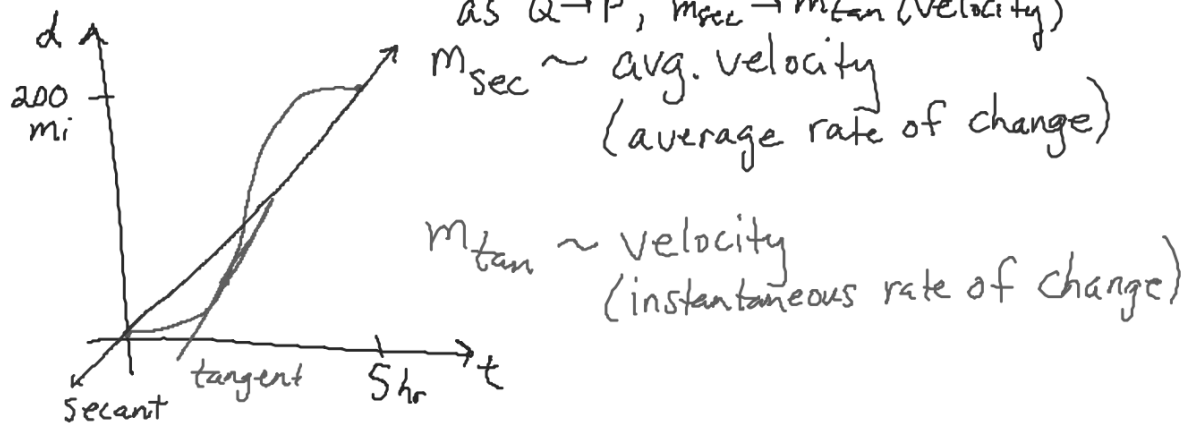 as Q→P, m_sec → m_tan (velocity)
d
m_sec ~ avg. velocity
200
mi
(average rate of change)
m_tan ~ velocity
(instantaneous rate of change)
tangent
5 hr
t
secant